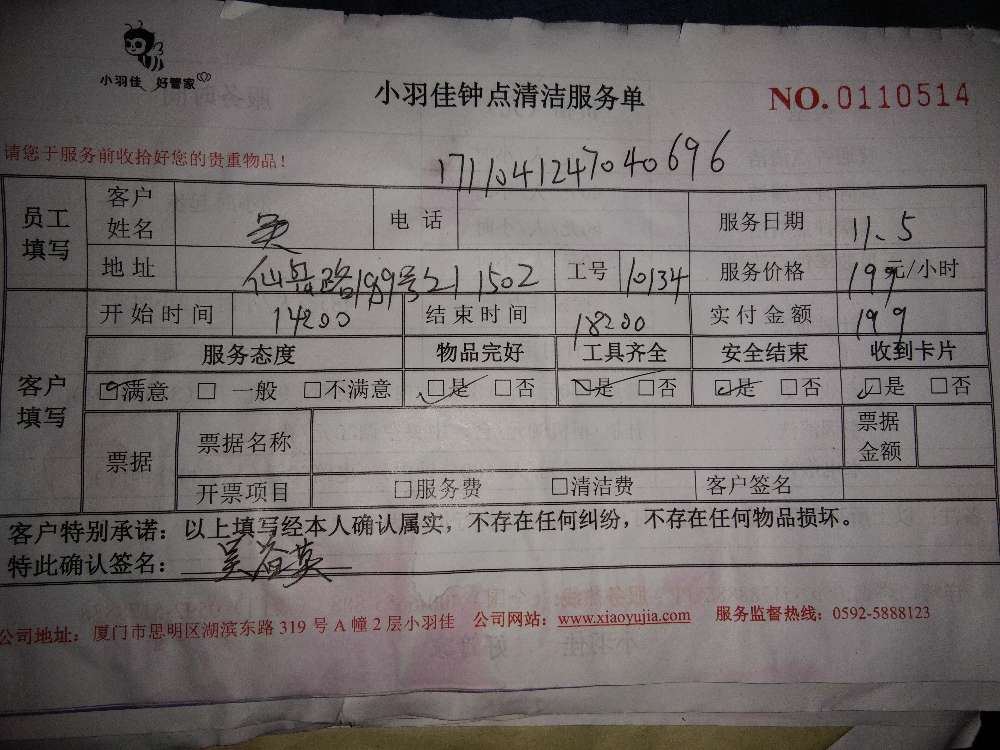 小羽佳 好管家
小羽佳钟点清洁服务单
NO.0110514
请您于服务前收拾好您的贵重物品!
171104124704069 6
员工填写 客户姓名 吴 电话 服务日期 11.5
地址 仙岳路189号21 1502 工号 10134 服务价格 199元/小时
开始时间 14:00 结束时间 18:00 实付金额 199
客户填写 服务态度 物品完好 工具齐全 安全结束 收到卡片
☑满意 □一般 □不满意 ☑是 □否 ☑是 □否 ☑是 □否 ☑是 □否
票据 票据名称 票据金额
开票项目 □服务费 □清洁费 客户签名
客户特别承诺:以上填写经本人确认属实,不存在任何纠纷,不存在任何物品损坏。
特此确认签名:吴备英
公司地址:厦门市思明区湖滨东路319号A幢2层小羽佳 公司网站:www.xiaoyujia.com 服务监督热线:0592-5888123